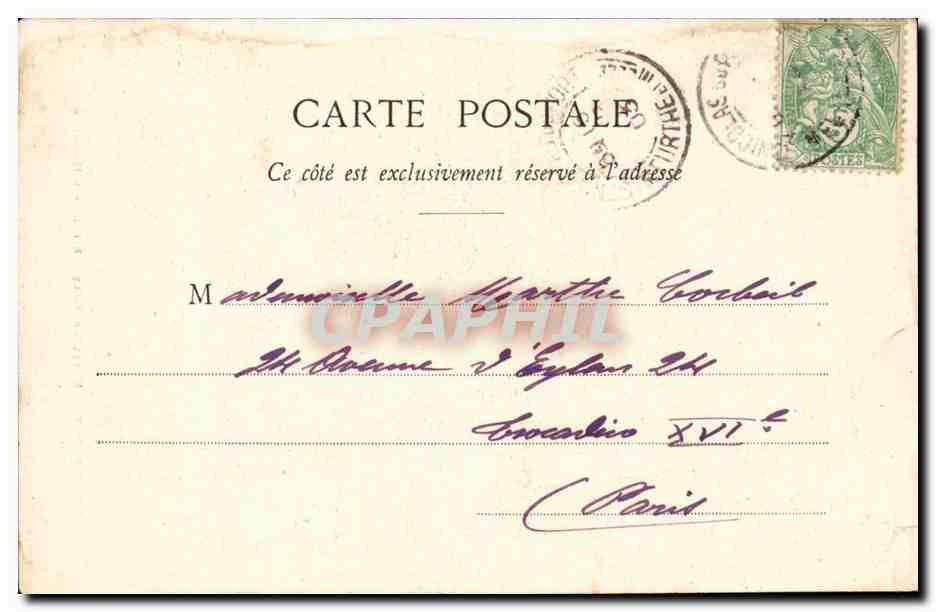 CARTE POSTALE
Ce côté est exclusivement réservé à l'adresse
Mademoiselle Marthe Corbeil
24 Avenue d'Eylau 24
Trocadéro XVIe
(Paris
CPAPHIL
POSTES
MEURTHE-ET-M
03